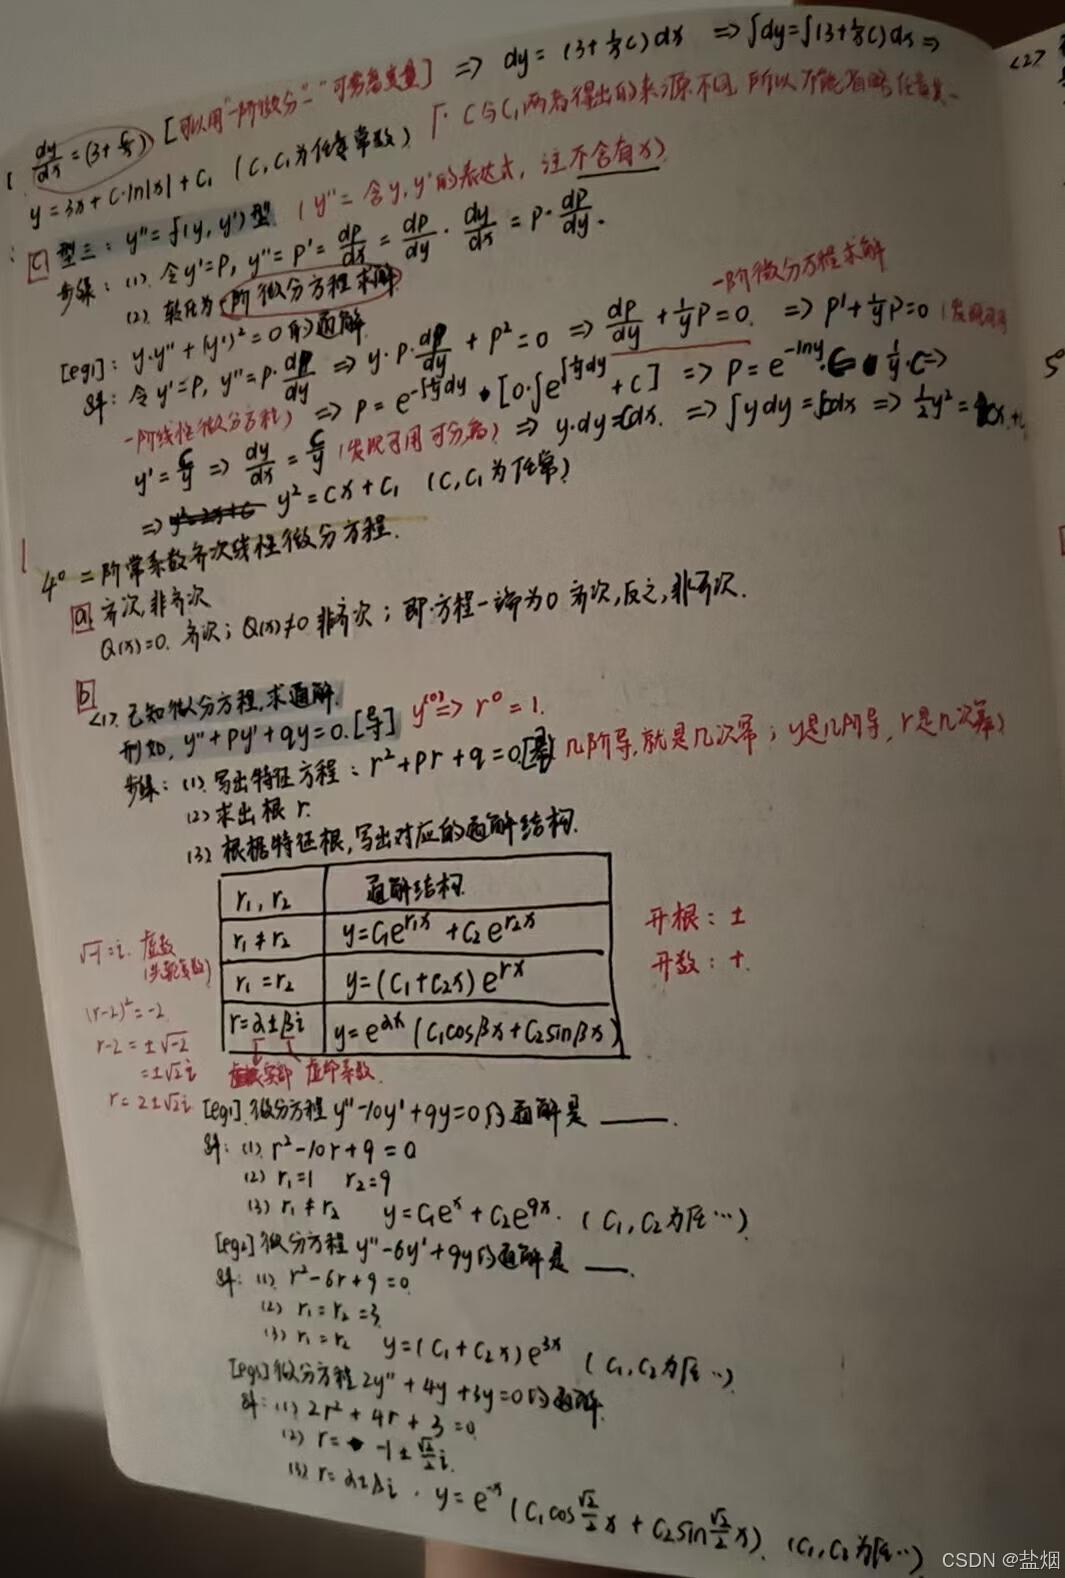 dy/dx = (3+c/x) [可以用"一阶微分"-"可分离变量] ⇒ dy = (3+1/x c)dx ⇒ ∫dy=∫(3+1/x c)dx ⇒
y = 3x + C·ln|x| + C₁ (C, C₁为任意常数) 「· C与C₁两者得出的来源不同, 所以不能省略任意其一
[C] 型三: y''=f(y, y')型 (y''= 含y, y'的表达式, 注不含有x)
步骤: (1). 令y'=P, y''=P'=dP/dx=dP/dy·dy/dx=P·dP/dy.
(2). 转化为一阶微分方程求解
[eg1]: y·y''+(y')²=0的通解. 一阶微分方程求解
解: 令y'=P, y''=P·dP/dy ⇒ y·P·dP/dy+P²=0 ⇒ dP/dy+1/y P=0. ⇒ P'+1/y P=0
一阶线性(微分方程) ⇒ P=e^-∫1/y dy·[0·∫e^∫1/y dy+C] ⇒ P=e^-lny·C 1/y·C ⇒
y'=C/y ⇒ dy/dx=C/y (发现可用可分离) ⇒ y·dy=Cdx. ⇒ ∫ydy=∫Cdx ⇒ ½y²=
⇒ y²=Cx+C₁ (C, C₁为任常)
4° 二阶常系数齐次线性微分方程.
[a] 齐次, 非齐次
Q(x)=0. 齐次; Q(x)≠0 非齐次; 即·方程一端为0 齐次, 反之, 非齐次.
[b]
<1>. 已知微分方程, 求通解.
形如, y''+Py'+qy=0.[导] y⁽⁰⁾⇒r⁰=1.
步骤: (1). 写出特征方程: r²+Pr+q=0.[幂] 几阶导, 就是几次幂; y是几阶导, r是几次幂)
(2) 求出根r.
(3). 根据特征根, 写出对应的通解结构.
r₁, r₂ 通解结构.
r₁≠r₂ y=C₁e^r₁x+C₂e^r₂x
r₁=r₂ y=(C₁+C₂x)e^rx
r=α±βi y=e^αx(C₁cosβx+C₂sinβx)
实部 虚部系数.
开根: ±
开数: +.
√-1=i. 虚数
(r-2)²=-2
r-2=±√-2
=±√2i
r=2±√2i
[eg1]. 微分方程y''-10y'+9y=0的通解是 ____.
解: (1). r²-10r+9=0
(2) r₁=1 r₂=9
(3) r₁≠r₂ y=C₁e^x+C₂e^9x. (C₁, C₂为任…)
[eg2] 微分方程y''-6y'+9y的通解是 ___.
解: (1). r²-6r+9=0
(2) r₁=r₂=3
(3) r₁=r₂ y=(C₁+C₂x)e^3x (C₁, C₂为任…)
[eg3] 微分方程2y''+4y+3y=0的通解.
解: (1) 2r²+4r+3=0
(2) r=-1±√2/2 i.
(3) r=α±βi, y=e^-x(C₁cos√2/2 x+C₂sin√2/2 x). (C₁, C₂为任…)
<2>
5°
CSDN @盐烟